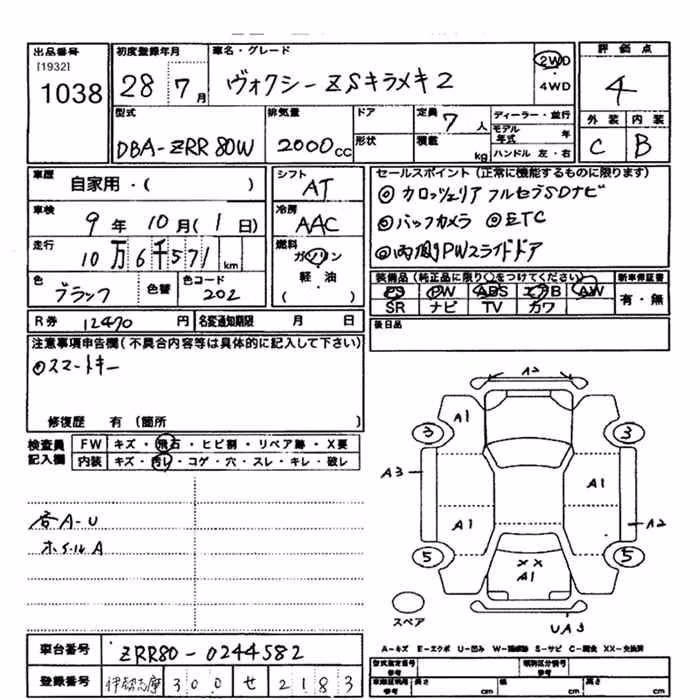 出品番号 [1932] 1038
初度登録年月 28 7月
車名・グレード ヴォクシー ZSキラメキ2
2WD ・ 4WD
評価点 4
外装 C 内装 B
型式 DBA-ZRR80W
排気量 2000cc
ドア 形状
定員 7人
積載 kg
ディーラー・並行
モデル年式 年
ハンドル 左・右
車歴 自家用・( )
シフト AT
車検 9年10月(1日)
冷房 AAC
走行 10万6千571km
燃料 ガソリン 軽・油 ( )
色 ブラック 色替 色コード 202
セールスポイント(正常に機能するものに限ります)
◎カロッツェリア フルセグSDナビ
◎バックカメラ ◎ETC
◎両側PWスライドドア
装備品(純正品に限り○をつけてください) 新車保証書
PS PW ABS エアB AW 有・無
SR ナビ TV カワ
R券 12470円 名変通知期限 月 日
後日品
注意事項申告欄(不具合内容等は具体的に記入して下さい)
◎スマートキー
修復歴 有(箇所 )
検査員記入欄 FW キズ・飛石・ヒビ割・リペア跡・X要
内装 キズ・汚レ・コゲ・穴・スレ・キレ・破レ
各A-U
ホイールA
A2
A1
3 3
A3 A1
A1 A2
5 5
XX
A1
スペア
UA3
A-キズ E-エクボ U-凹み W-補修跡 S-サビ C-腐食 XX-交換済
車台番号 ZRR80-0244582
登録番号 伊勢志摩 300 せ 2183
型式指定番号 参考
類別区分番号 参考
長さ cm 幅 cm 高さ cm